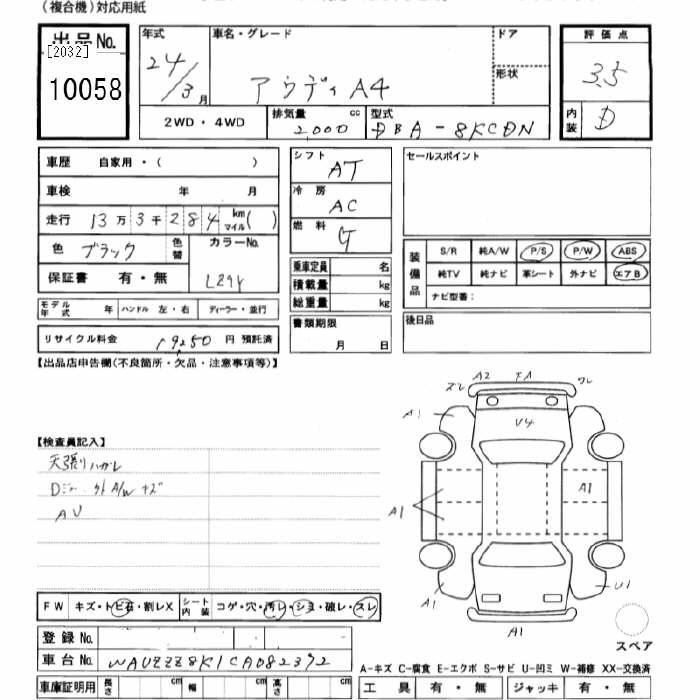 (複合機)対応用紙
出品No.
[2032]
10058
年式
24/3月
車名・グレード
アウディA4
ドア
形状
評価点
3.5
内装 D
2WD・4WD
排気量 2000 cc
型式 DBA-8KCDN
車歴 自家用・( )
車検 年 月
走行 13万3千284 km マイル( )
色 ブラック 色替
カラーNo.
保証書 有・無
モデル年式 年 ハンドル 左・右 ディーラー・並行
リサイクル料金 19250 円 預託済
シフト AT
冷房 AC
燃料 G
乗車定員 名
積載量 kg
総重量 kg
書類期限
月 日
セールスポイント
装備品
S/R 純A/W P/S P/W ABS
純TV 純ナビ 革シート 外ナビ エアB
ナビ型番:
後日品
【出品店申告欄(不良箇所・欠品・注意事項等)】
【検査員記入】
天張りハガレ
外A/Wキズ
AU
A2
A1
U4
A1
A1
A1
U1
A1
A1
スペア
FW キズ・トビ石・割レX
シート内装 コゲ・穴・汚レ・シミ・破レ・スレ
登録No.
車台No. WAUZZZ8K1CA082392
車庫証明用 長さ cm 幅 cm 高さ cm
A-キズ C-腐食 E-エクボ S-サビ U-凹ミ W-補修 XX-交換済
工具 有・無 ジャッキ 有・無